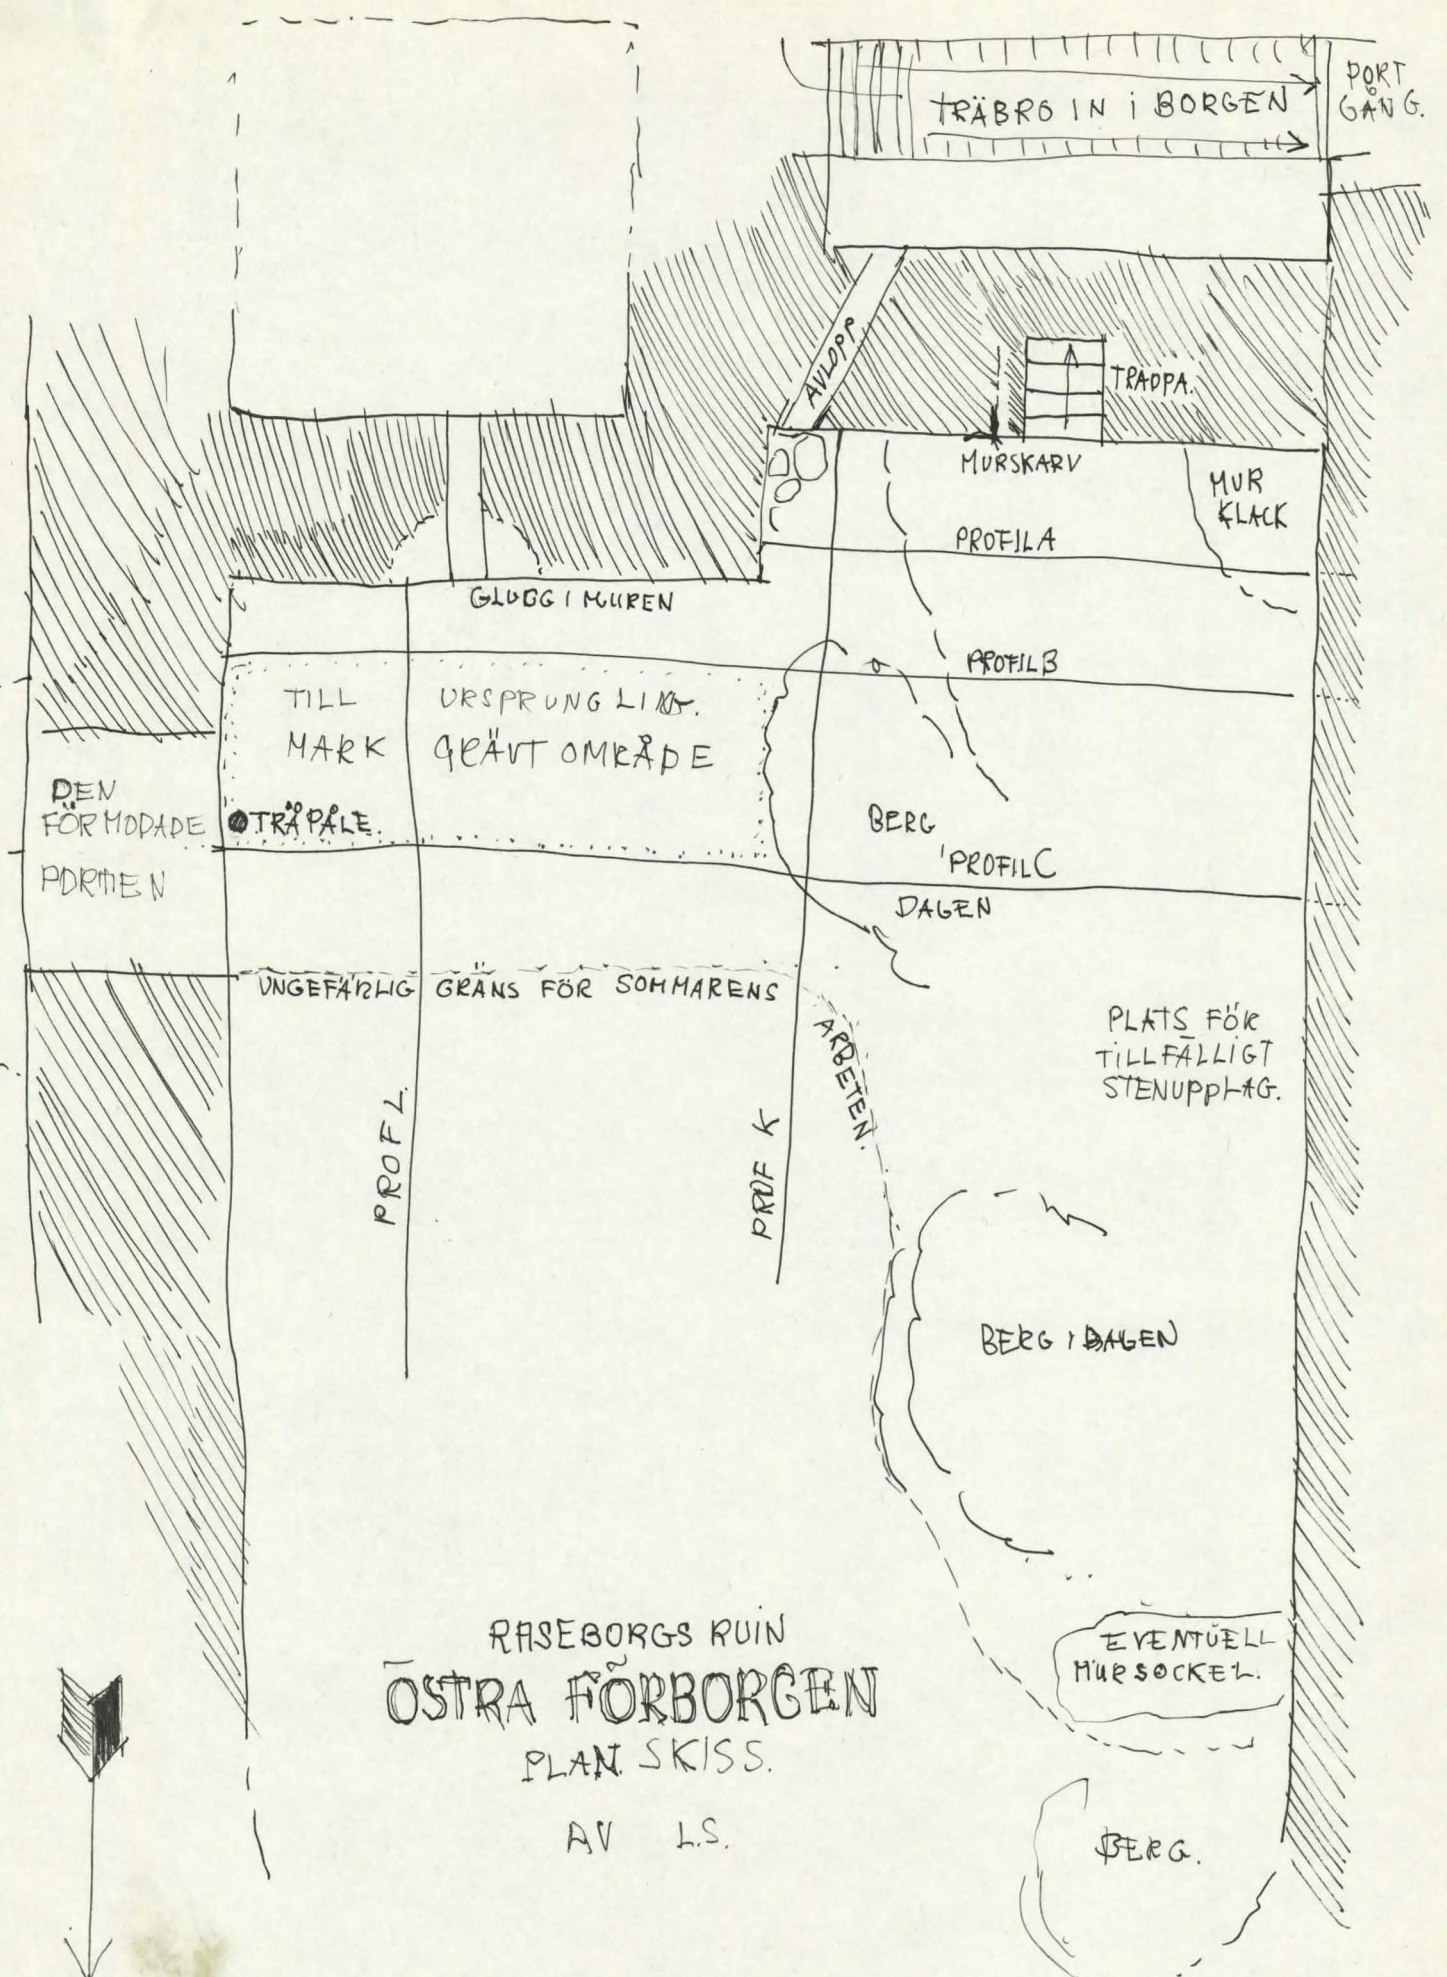 PORT
GÅNG.
TRÄBRO IN i BORGEN
AVLOPP
TRAPPA.
MURSKARV
MUR
KLACK
PROFIL A
GLUGG I MUREN
PROFIL B
TILL URSPRUNGLIG.
MARK GRÄVT OMRÅDE
DEN
FÖRMODADE
PORTEN
TRÄPÅLE.
BERG
I PROFIL C
DAGEN
UNGEFÄRLIG GRÄNS FÖR SOMMARENS
ARBETEN.
PLATS FÖR
TILLFÄLLIGT
STENUPPLAG.
PROF L.
PROF K
BERG I DAGEN
RASEBORGS RUIN
ÖSTRA FÖRBORGEN
PLAN. SKISS.
AV L.S.
EVENTUELL
MURSOCKEL.
BERG.